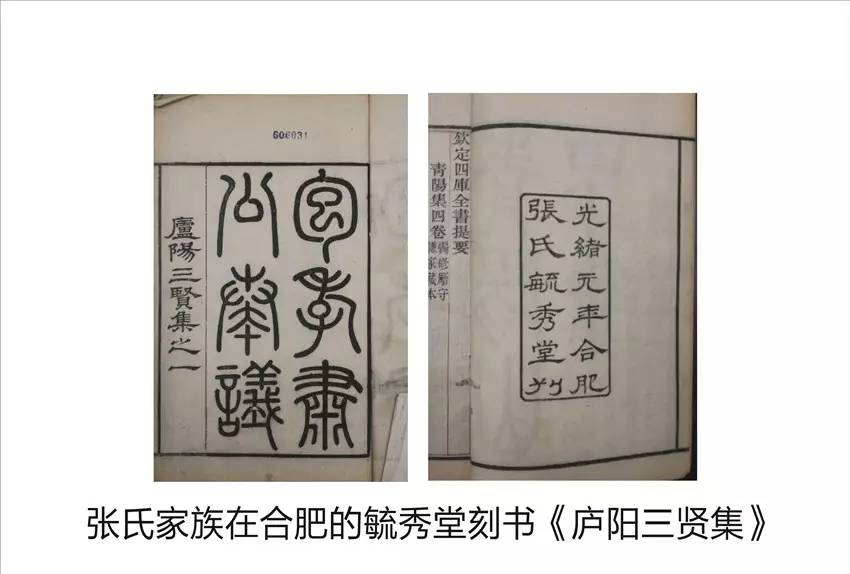 606031
包孝肅
公奏議
廬陽三賢集之一
欽定四庫全書提要
青陽集四卷編修勵守謙家藏本
光緒元年合肥
張氏毓秀堂刊
张氏家族在合肥的毓秀堂刻书《庐阳三贤集》